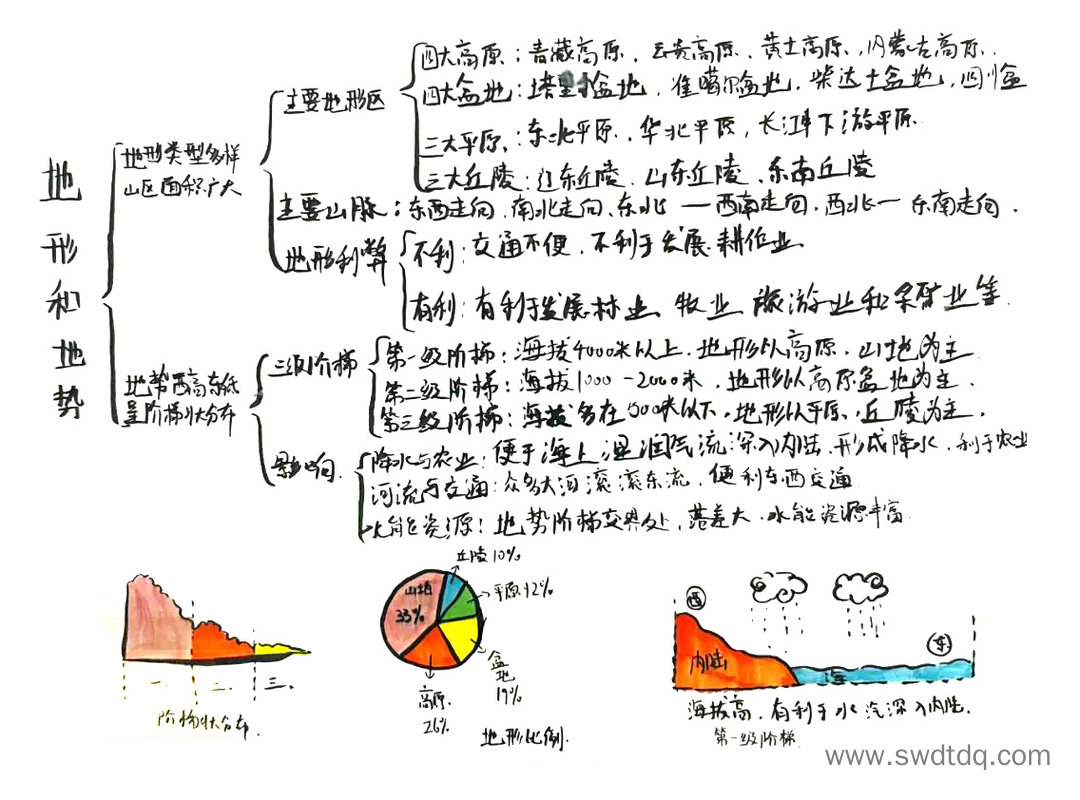 地形和地势
地形类型多样
山区面积广大
主要地形区
四大高原：青藏高原、云贵高原、黄土高原、内蒙古高原
四大盆地：塔里木盆地，准噶尔盆地，柴达木盆地，四川盆
三大平原：东北平原、华北平原，长江中下游平原
三大丘陵：辽东丘陵、山东丘陵、东南丘陵
主要山脉：东西走向、南北走向、东北一西南走向、西北一东南走向．
地形利弊
不利：交通不便，不利于发展耕作业
有利：有利于发展林业、牧业、旅游业和采矿业等．
地势西高东低
呈阶梯状分布
三级阶梯
第一级阶梯：海拔4000米以上，地形以高原，山地为主
第二级阶梯：海拔1000-2000米，地形以高原盆地为主．
第三级阶梯：海拔多在500米以下，地形以平原，丘陵为主．
影响
降水与农业：便于海上湿润气流深入内陆，形成降水，利于农业
河流与交通：众多大河滚滚东流，便利东西交通
水能资源：地势阶梯交界处，落差大，水能资源丰富
一．
二．
三．
阶梯状分布
丘陵10%
平原12%
山地
33%
盆地
19%
高原
26%
地形比例．
西
东
内陆
海
海拔高，有利于水汽深入内陆．
第一级阶梯
www.swdtdq.com